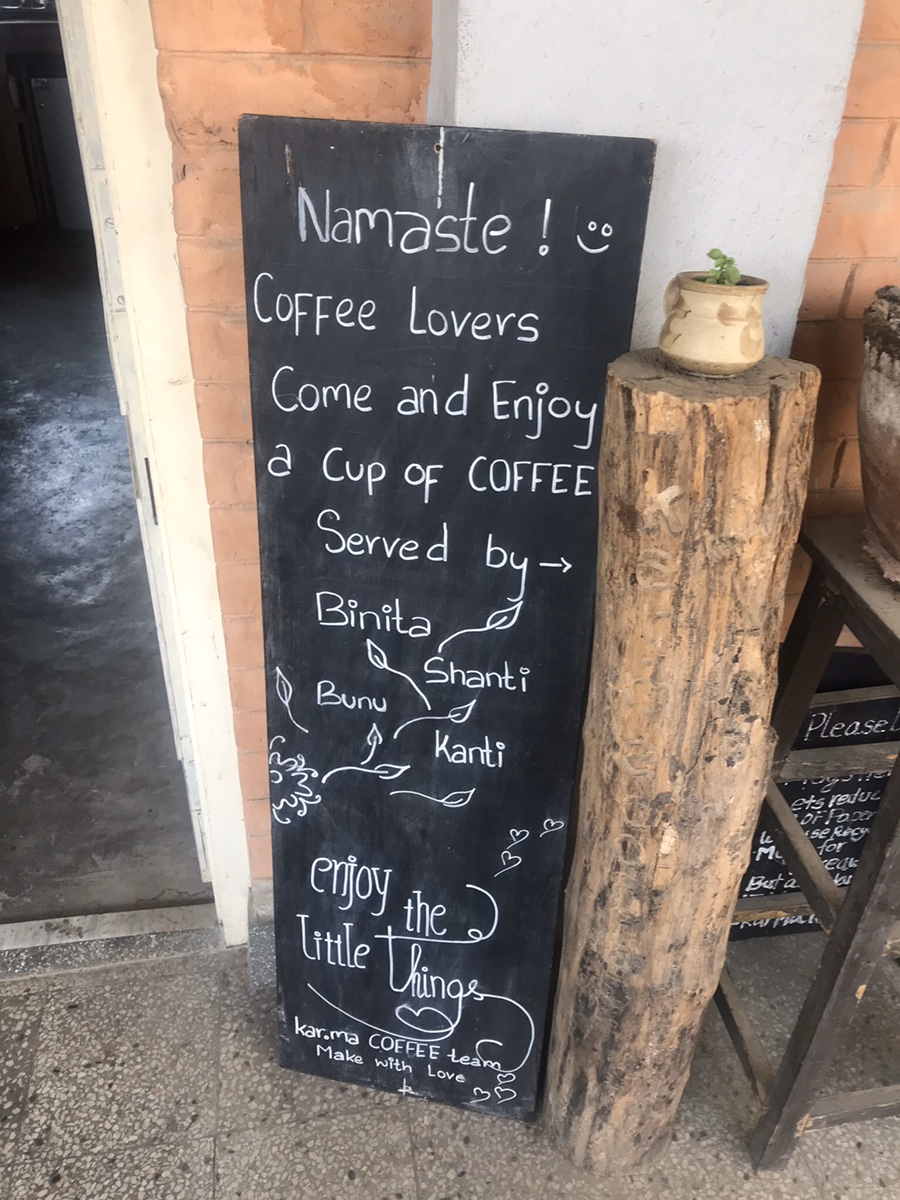 Namaste !
Coffee Lovers
Come and Enjoy
a Cup of COFFEE
Served by →
Binita
Shanti
Bunu
Kanti
enjoy
the
little things
kar.ma COFFEE team
Make with Love
Please
reduc
of Paper
use Recy
for
But a